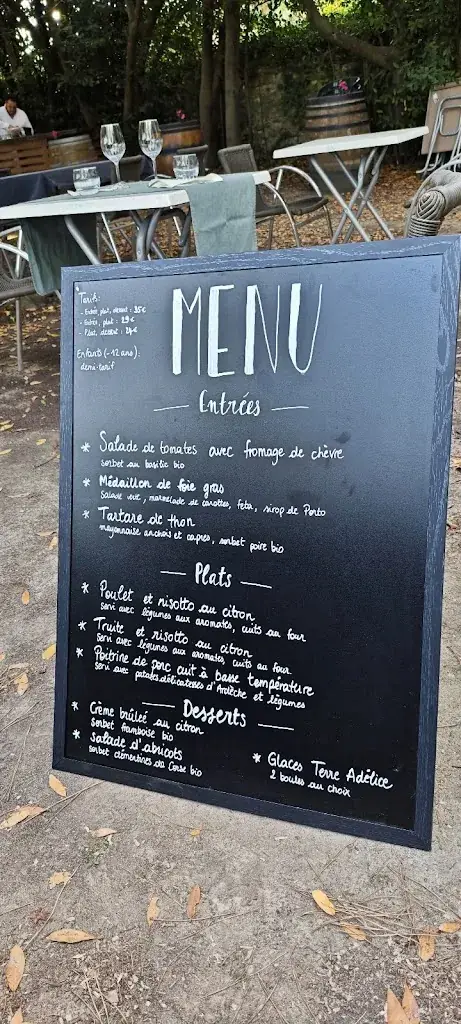 Tarifs:
- Entrée, plat, dessert : 35€
- Entrée, plat : 29€
- Plat, dessert : 24€
Enfants (- 12 ans) :
demi-tarif
MENU
Entrées
* Salade de tomates avec fromage de chèvre
sorbet au basilic bio
* Médaillon de foie gras
Salade, marmelade de carottes, feta, sirop de Porto
* Tartare de thon
mayonnaise anchois et capres, sorbet poire bio
Plats
* Poulet et risotto au citron
servi avec légumes aux aromates, cuits au four
* Truite et risotto au citron
servi avec légumes aux aromates, cuits au four
* Poitrine de porc cuit à basse température
servi avec patates délicatesses d'Ardèche et légumes
Desserts
* Crème brûleé au citron
Sorbet framboise bio
* Salade d'abricots
sorbet clémentines de Corse bio
* Glaces Terre Adélice
2 boules au choix